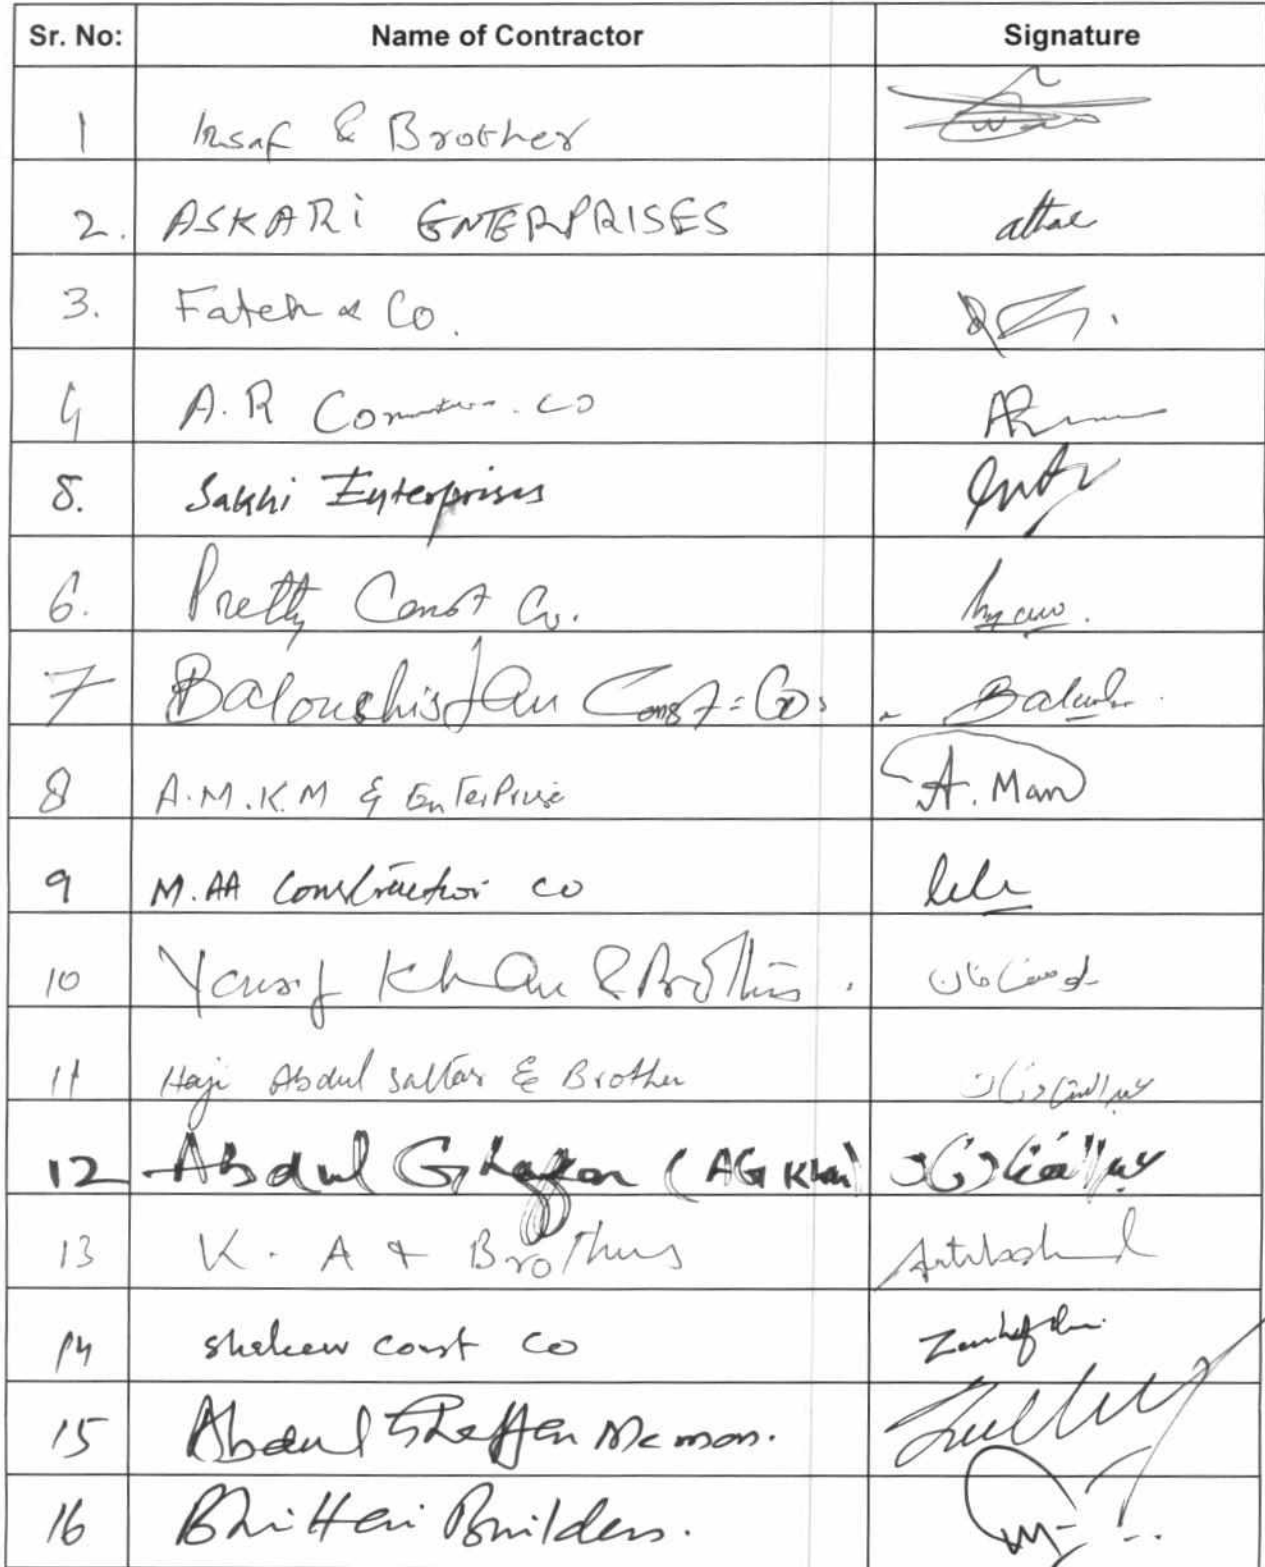 Sr. No: Name of Contractor Signature
1 Insaf & Brother
2. ASKARi ENTERPRISES attae
3. Fateh & Co.
4 A.R Co
5. Sakhi Enterprises
6. Pretty Const Co.
7 Balouchistan Const = Co: Baluch
8 A.M.K.M & EnTerPrise A. Man
9 M.AA Construction co
10 Yousf Khan & Brothers. يوسف خان
11 Haji Abdul Sattar & Brother عبدالستار خان
12 Abdul Ghaffar (AG Khan)
13 K. A & Brothers
14 shaheen const co
15 Abdul Ghaffar Memon.
16 Bhittai Builders.